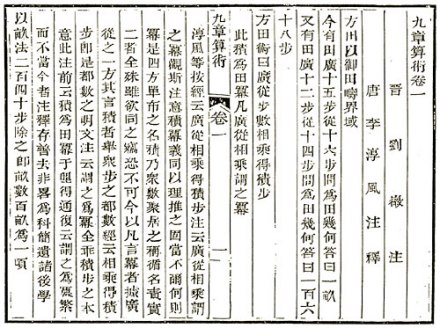 九章算術卷一
晉劉徽注
唐李淳風注釋
方田以御田疇界域
今有田廣十五步從十六步問為田幾何答曰一畝
又有田廣十二步從十四步問為田幾何答曰一百六
十八步
方田術曰廣從步數相乘得積步
此積為田冪凡廣從相乘謂之冪
九章算術 卷一 一
淳風等按經云廣從相乘得積步注云廣從相乘謂
之冪觀斯注意積冪義同以理推之固當不爾何則
冪是四方單布之名積乃眾數聚居之稱循名責實
二者全殊雖欲同之竊恐不可今以凡言冪者據廣
從之一方其言積者舉眾步之都數經云相乘得積
步即是都數之明文注云謂之為冪全乖積步之本
意此注前云積為田冪于理得通復云謂之為冪繁
而不當今者注釋存善去非略為科簡遺諸後學
以畝法二百四十步除之即畝數百畝為一頃